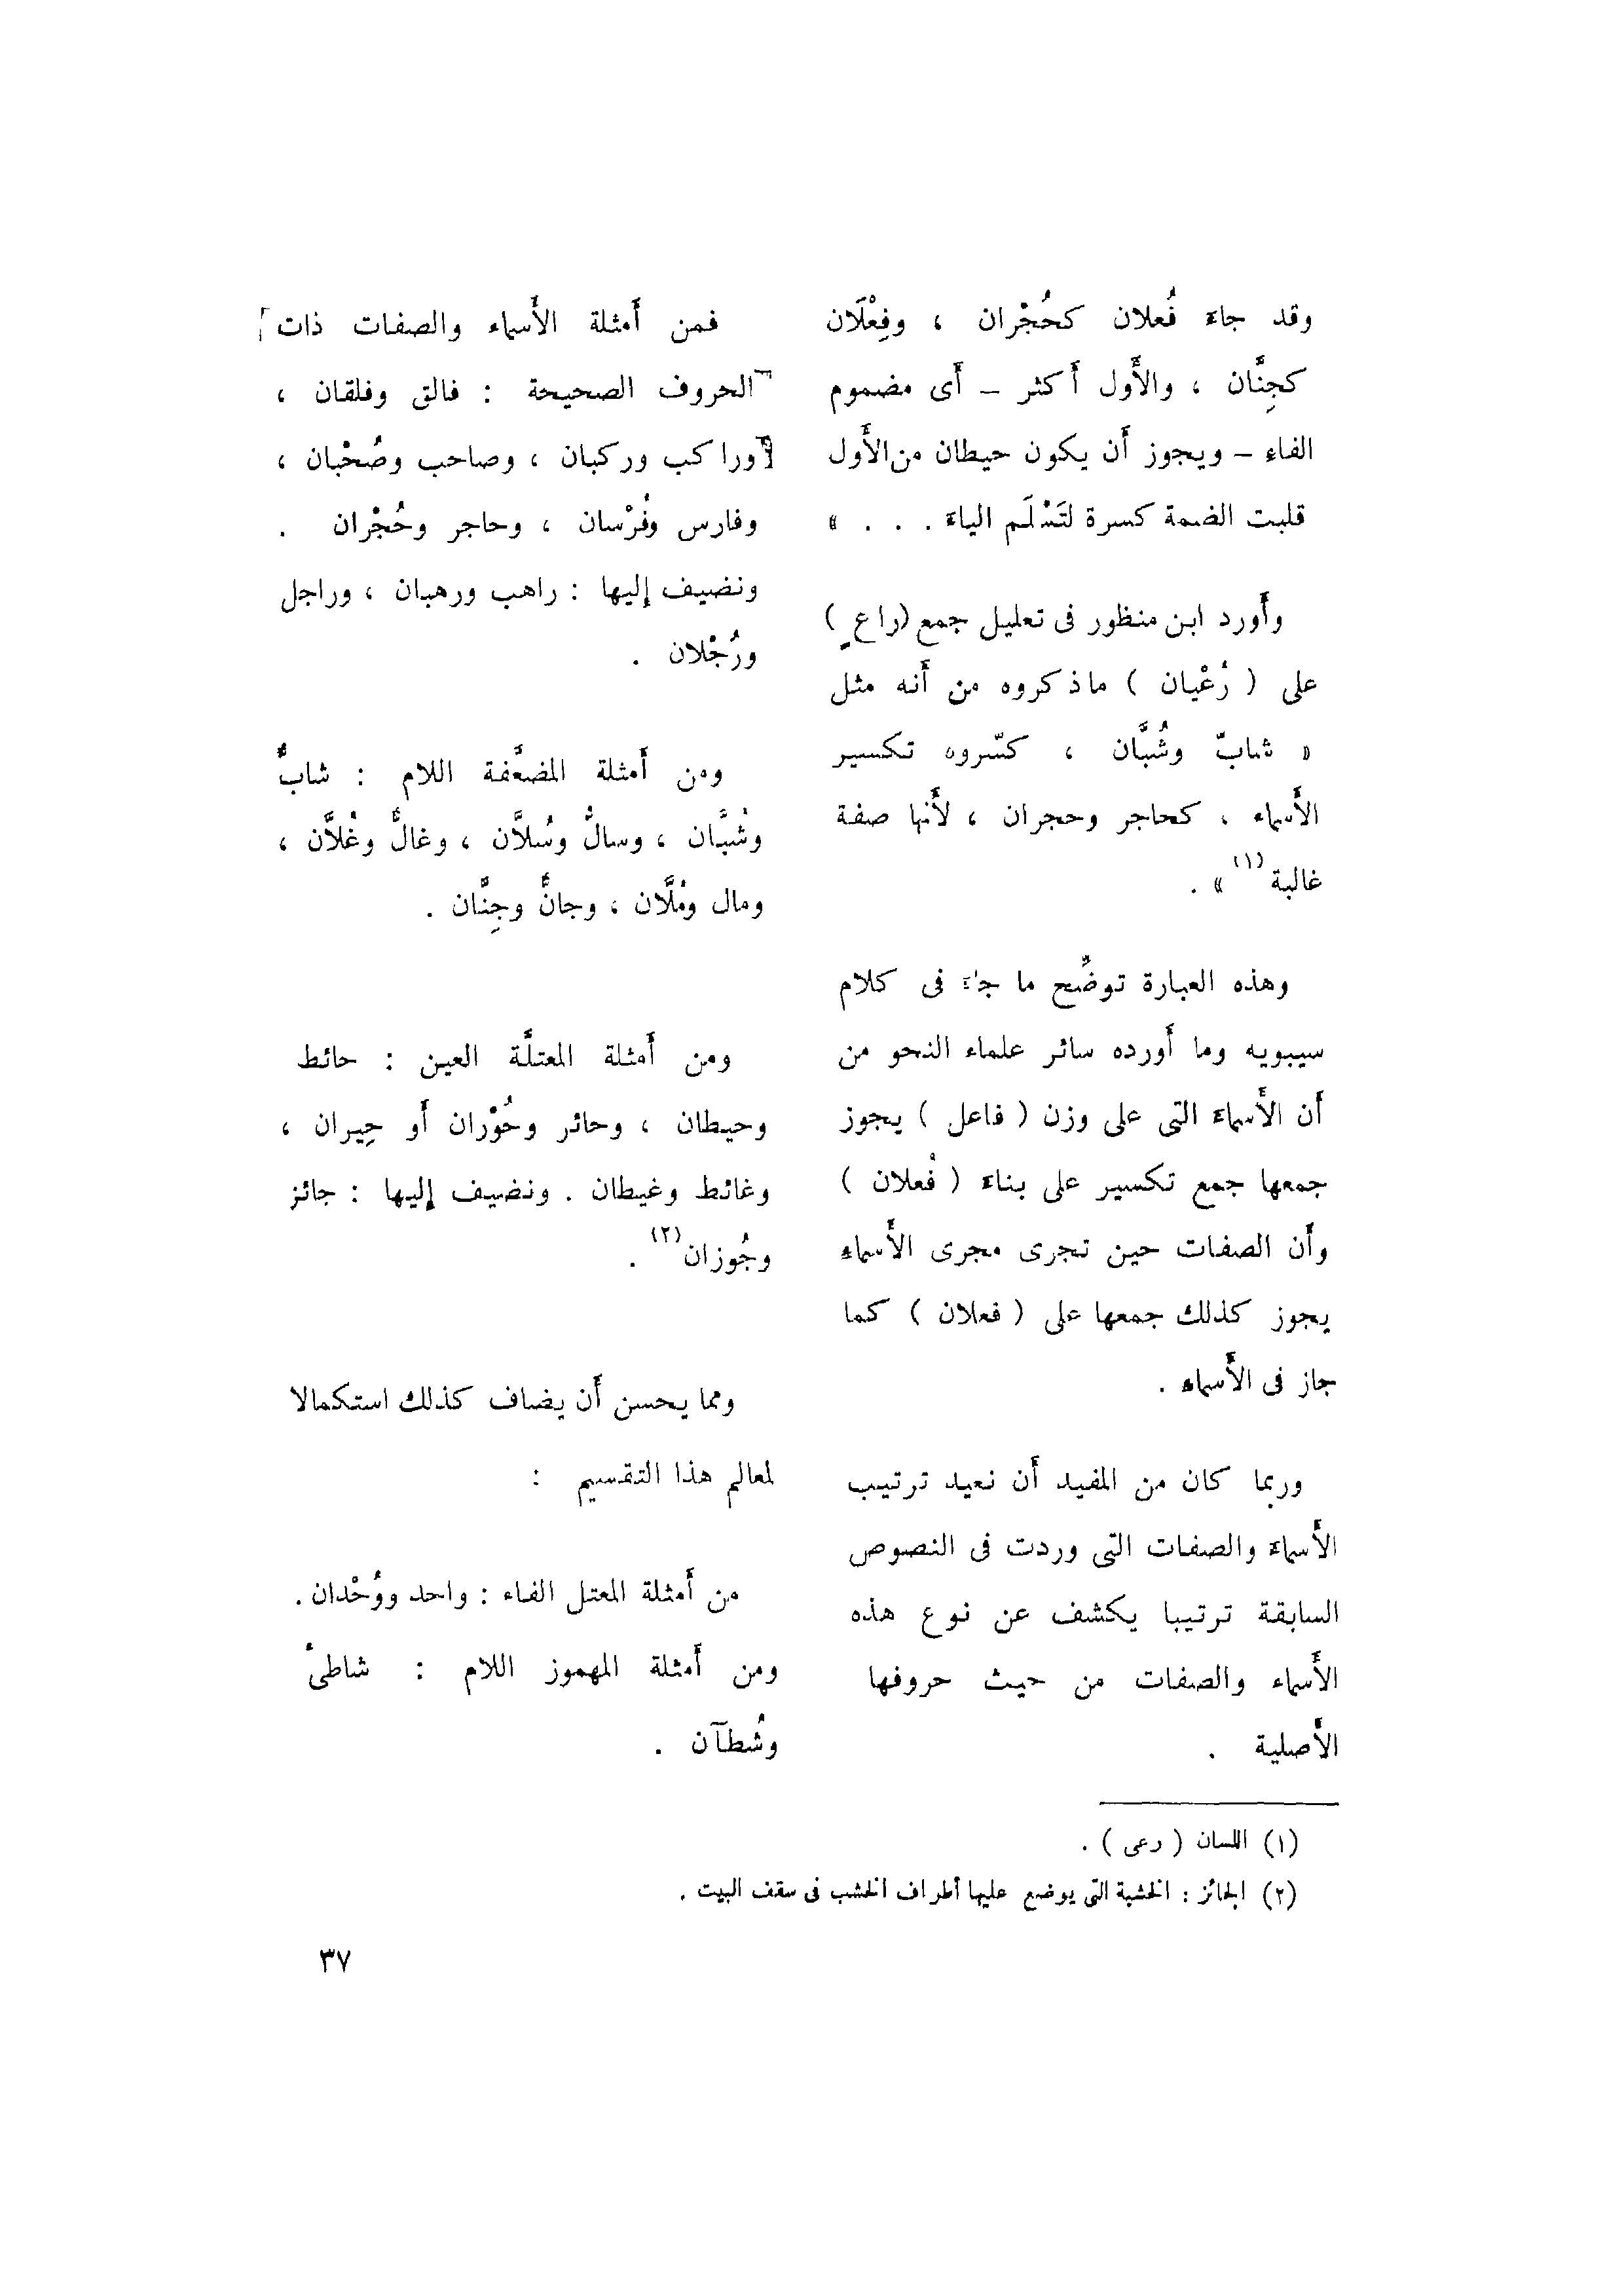 وقد جاءَ فُعلان كحُجْران ، وفِعْلَان
كجِنَّان ، والأَول أَكثر – أَى مضموم
الفاءِ – ويجوز أَن يكون حيطان من الأَول
قلبت الضمة كسرة لتَسْلَم الياءَ . . . »
وأَورد ابن منظور فى تعليل جمع (راعٍ)
على ( رُعْيان ) ماذكروه من أَنه مثل
« شابّ وشُبَّان ، كسّروه تكسير
الأَسماء ، كحاجر وحجران ، لأَنها صفة
غالبة (١) » .
وهذه العبارة توضِّح ما جاءَ فى كلام
سيبويه وما أَورده سائر علماء النحو من
أَن الأَسماءَ التى على وزن ( فاعل ) يجوز
جمعها جمع تكسير على بناءَ ( فُعلان )
وأَن الصفات حين تجرى مجرى الأَسماءِ
يجوز كذلك جمعها على ( فعلان ) كما
جاز فى الأَسماءِ .
وربما كان من المفيد أَن نعيد ترتيب
الأَسماءَ والصفات التى وردت فى النصوص
السابقة ترتيبا يكشف عن نوع هذه
الأَسماء والصفات من حيث حروفها
الأَصلية .
فمن أَمثلة الأَسماء والصفات ذات
الحروف الصحيحة : فالق وفلقان ،
وراكب وركبان ، وصاحب وصُحْبان ،
وفارس وفُرْسان ، وحاجر وحُجْران .
ونضيف إليها : راهب ورهبان ، وراجل
ورُجْلان .
ومن أَمثلة المضعَّفة اللام : شابٌّ
وشُبَّان ، وسالٌّ وسُلاَّن ، وغالٌّ وغُلاَّن ،
ومال ومُلَّان ، وجانٌّ وجِنَّان .
ومن أَمثلة المعتلَّة العين : حائط
وحيطان ، وحائر وحُوْران أَو حِيران ،
وغائط وغيطان . ونضيف إليها : جائز
وجُوزان (٢) .
ومما يحسن أَن يضاف كذلك استكمالا
لمعالم هذا التقسيم :
من أَمثلة المعتل الفاء : واحد ووُحْدان .
ومن أَمثلة المهموز اللام : شاطئٌ
وشُطآن .
(١) اللسان ( رعى ) .
(٢) الجائز : الخشبة التى يوضع عليها أطراف الخشب فى سقف البيت .
٣٧